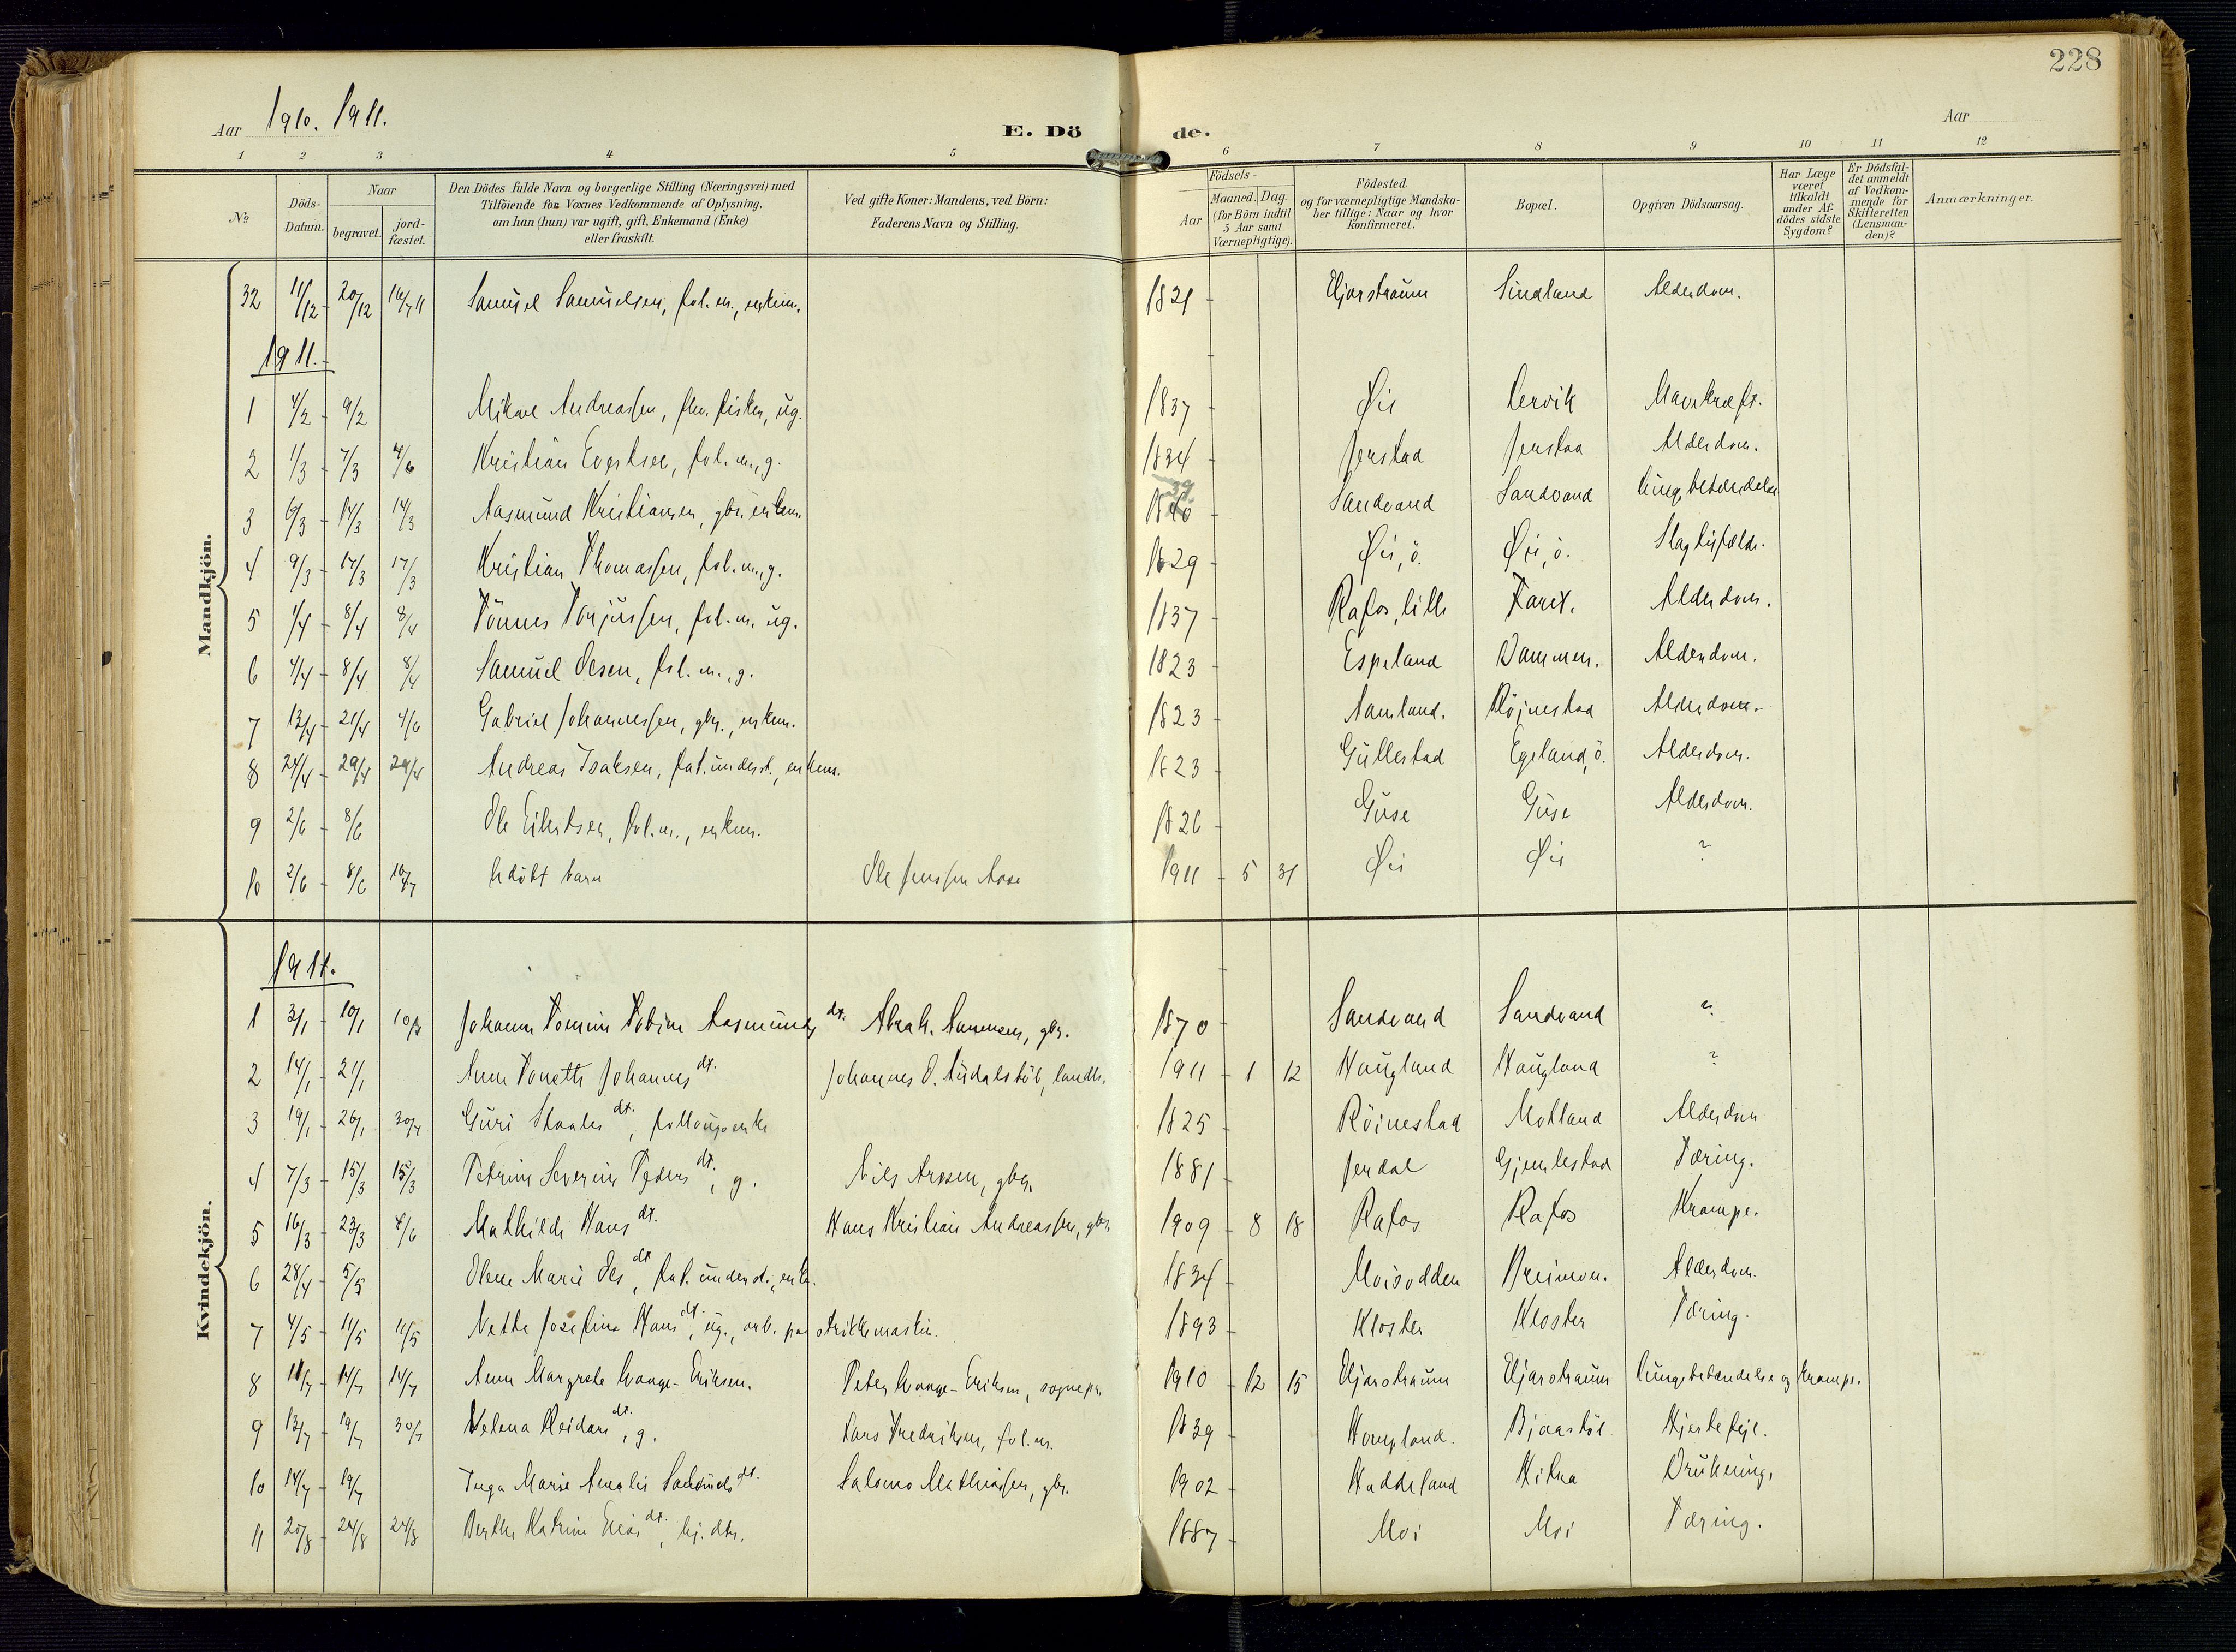 228
Aar 1910. 1911.
E. Dö de.
Aar
1 2 3 4 5 6 7 8 9 10 11 12
No
Döds-Datum.
Naar
begravet.
jord-fæstet.
Den Dödes fulde Navn og borgerlige Stilling (Næringsvei) med
Tilföiende for Voxnes Vedkommende af Oplysning,
om han (hun) var ugift, gift, Enkemand (Enke)
eller fraskilt.
Ved gifte Koner: Mandens, ved Börn:
Faderens Navn og Stilling.
Födsels-
Aar
Maaned. Dag.
(for Börn indtil
5 Aar samt
Værnepligtige).
Födested
og for værnepligtige Mandska-
ber tillige: Naar og hvor
konfirmeret.
Bopæl.
Opgiven Dödsaarsag.
Har Læge
været
tilkaldt
under Af-
dödes sidste
Sygdom?
Er Dödsfal-
det anmeldt
af Vedkom-
mende for
Skifteretten
(Lensman-
den)?
Anmærkninger.
Mandkjön.
32 11/12 20/12 16/7 11 Samuel Samuelsen, fol. m., enkem. 1821 Eljarstraum Sindland Alderdom.
1911.
1 4/2 9/2 Mikael Andreassen, fhv. fisker, ug. 1837 Øie Lervik Mavekræft.
2 1/3 7/3 4/6 Kristian Evertsen, fol. m., g. 1834 Jerstad Jerstad Alderdom.
3 6/3 14/3 14/3 Aasmund Kristiansen, gbr. enkem. 1840 39 Sandvand Sandvand Lungebetændelse
4 9/3 17/3 17/3 Kristian Thomassen, fol. m., g. 1829 Øie, ö. Øie, ö. Slagtilfælde.
5 1/4 8/4 8/4 Tönnes Torjussen, fol. m. ug. 1837 Rafos, lille Faret. Alderdom.
6 4/4 8/4 8/4 Samuel Olsen, fol. m., g. 1823 Espeland Dammen. Alderdom.
7 13/4 21/4 4/6 Gabriel Johannessen, gbr., enkem. 1823 Aamland. Röjnestad Alderdom.
8 24/4 29/4 29/4 Andreas Isaksen, fat. underst., enkem. 1823 Gullestad Egeland, ö. Alderdom.
9 2/6 8/6 Ole Eilertsen, fol. m., enkem. 1826 Guse Guse Alderdom.
10 2/6 8/6 16/7 Udöbt barn Ole Jenssen Aase 1911 5 31 Øie Øie ?
Kvindekjön.
1911.
1 3/1 10/1 Johanne Tomine Tobine Aasmunds dt. Abrah. Aanensen, gbr. 1870 Sandvand Sandvand
2 14/1 21/1 Anna Tonette Johannes dt. Johannes O. 1911 1 12 Haugland Haugland ?
3 19/1 26/1 30/4 Guri Staales dt., 1825 Röinestad Motland Alderdom
4 7/3 15/3 15/3 Petrine Severine Peders dt., g. Nils Arnsen, gbr. 1881 Jerdal Gjemlestad Tæring.
5 16/3 23/3 4/6 Mathilde Hans dt. Hans Kristian Andreassen, gbr. 1909 8 18 Rafos Rafos Krampe.
6 28/4 5/5 Olene Marie Ols dt., fat. underst., enke. 1834 Moisodden Breimon. Alderdom.
7 4/5 11/5 11/5 Nette Josefine Hans dt., ug., arb. paa strikkemaskin. 1893 Kloster Kloster Tæring.
8 11/7 14/7 14/7 Anna Margrete Vange-Eriksen. Peter Vange-Eriksen, sognepr. 1910 12 15 Eljarstraum Eljarstraum Lungebetændelse og krampe.
9 13/7 19/7 30/7 Helena Reidars dt., g. Lars Fredriksen, fol. m. 1839 Hompland. Bjaastöl Hjertefejl.
10 14/7 19/7 Inga Marie Amalie Salomos dt. Salomo Mathiassen, gbr. 1902 Haddeland Hitna Drukning.
11 20/8 24/8 24/8 Berthe Katrine dt., hj. dtr. 1887 Moi Moi Tæring.